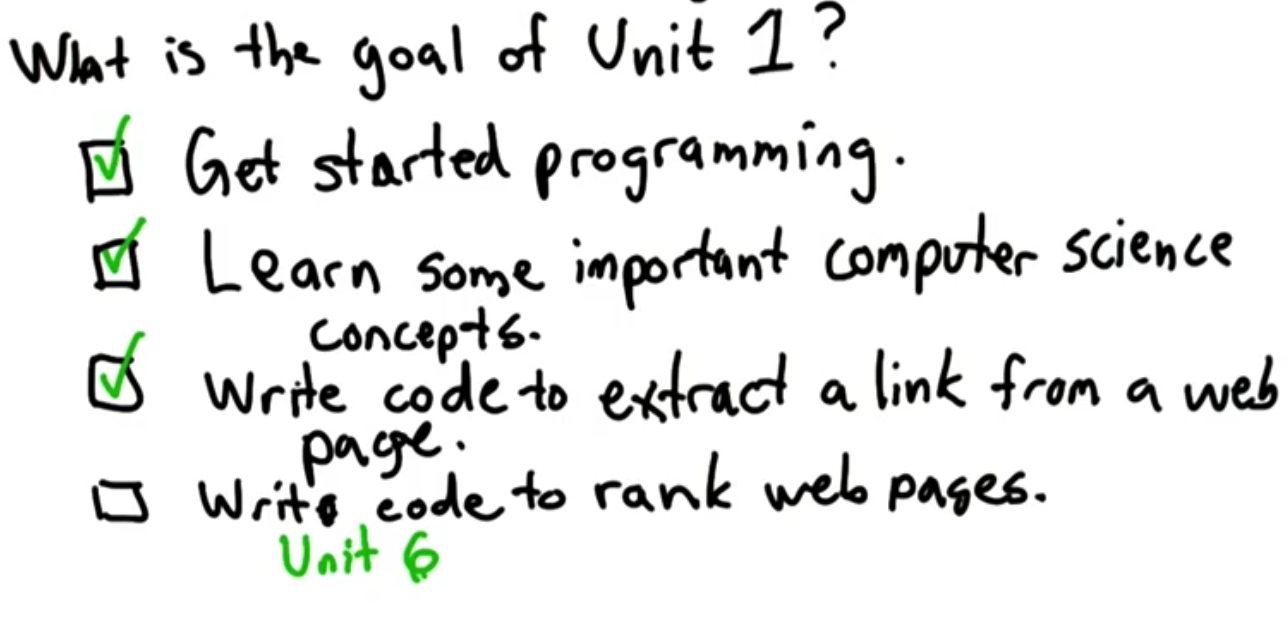 What is the goal of Unit 1?
Get started programming.
Learn some important computer science
concepts.
Write code to extract a link from a web
page.
Write code to rank web pages.
Unit 6